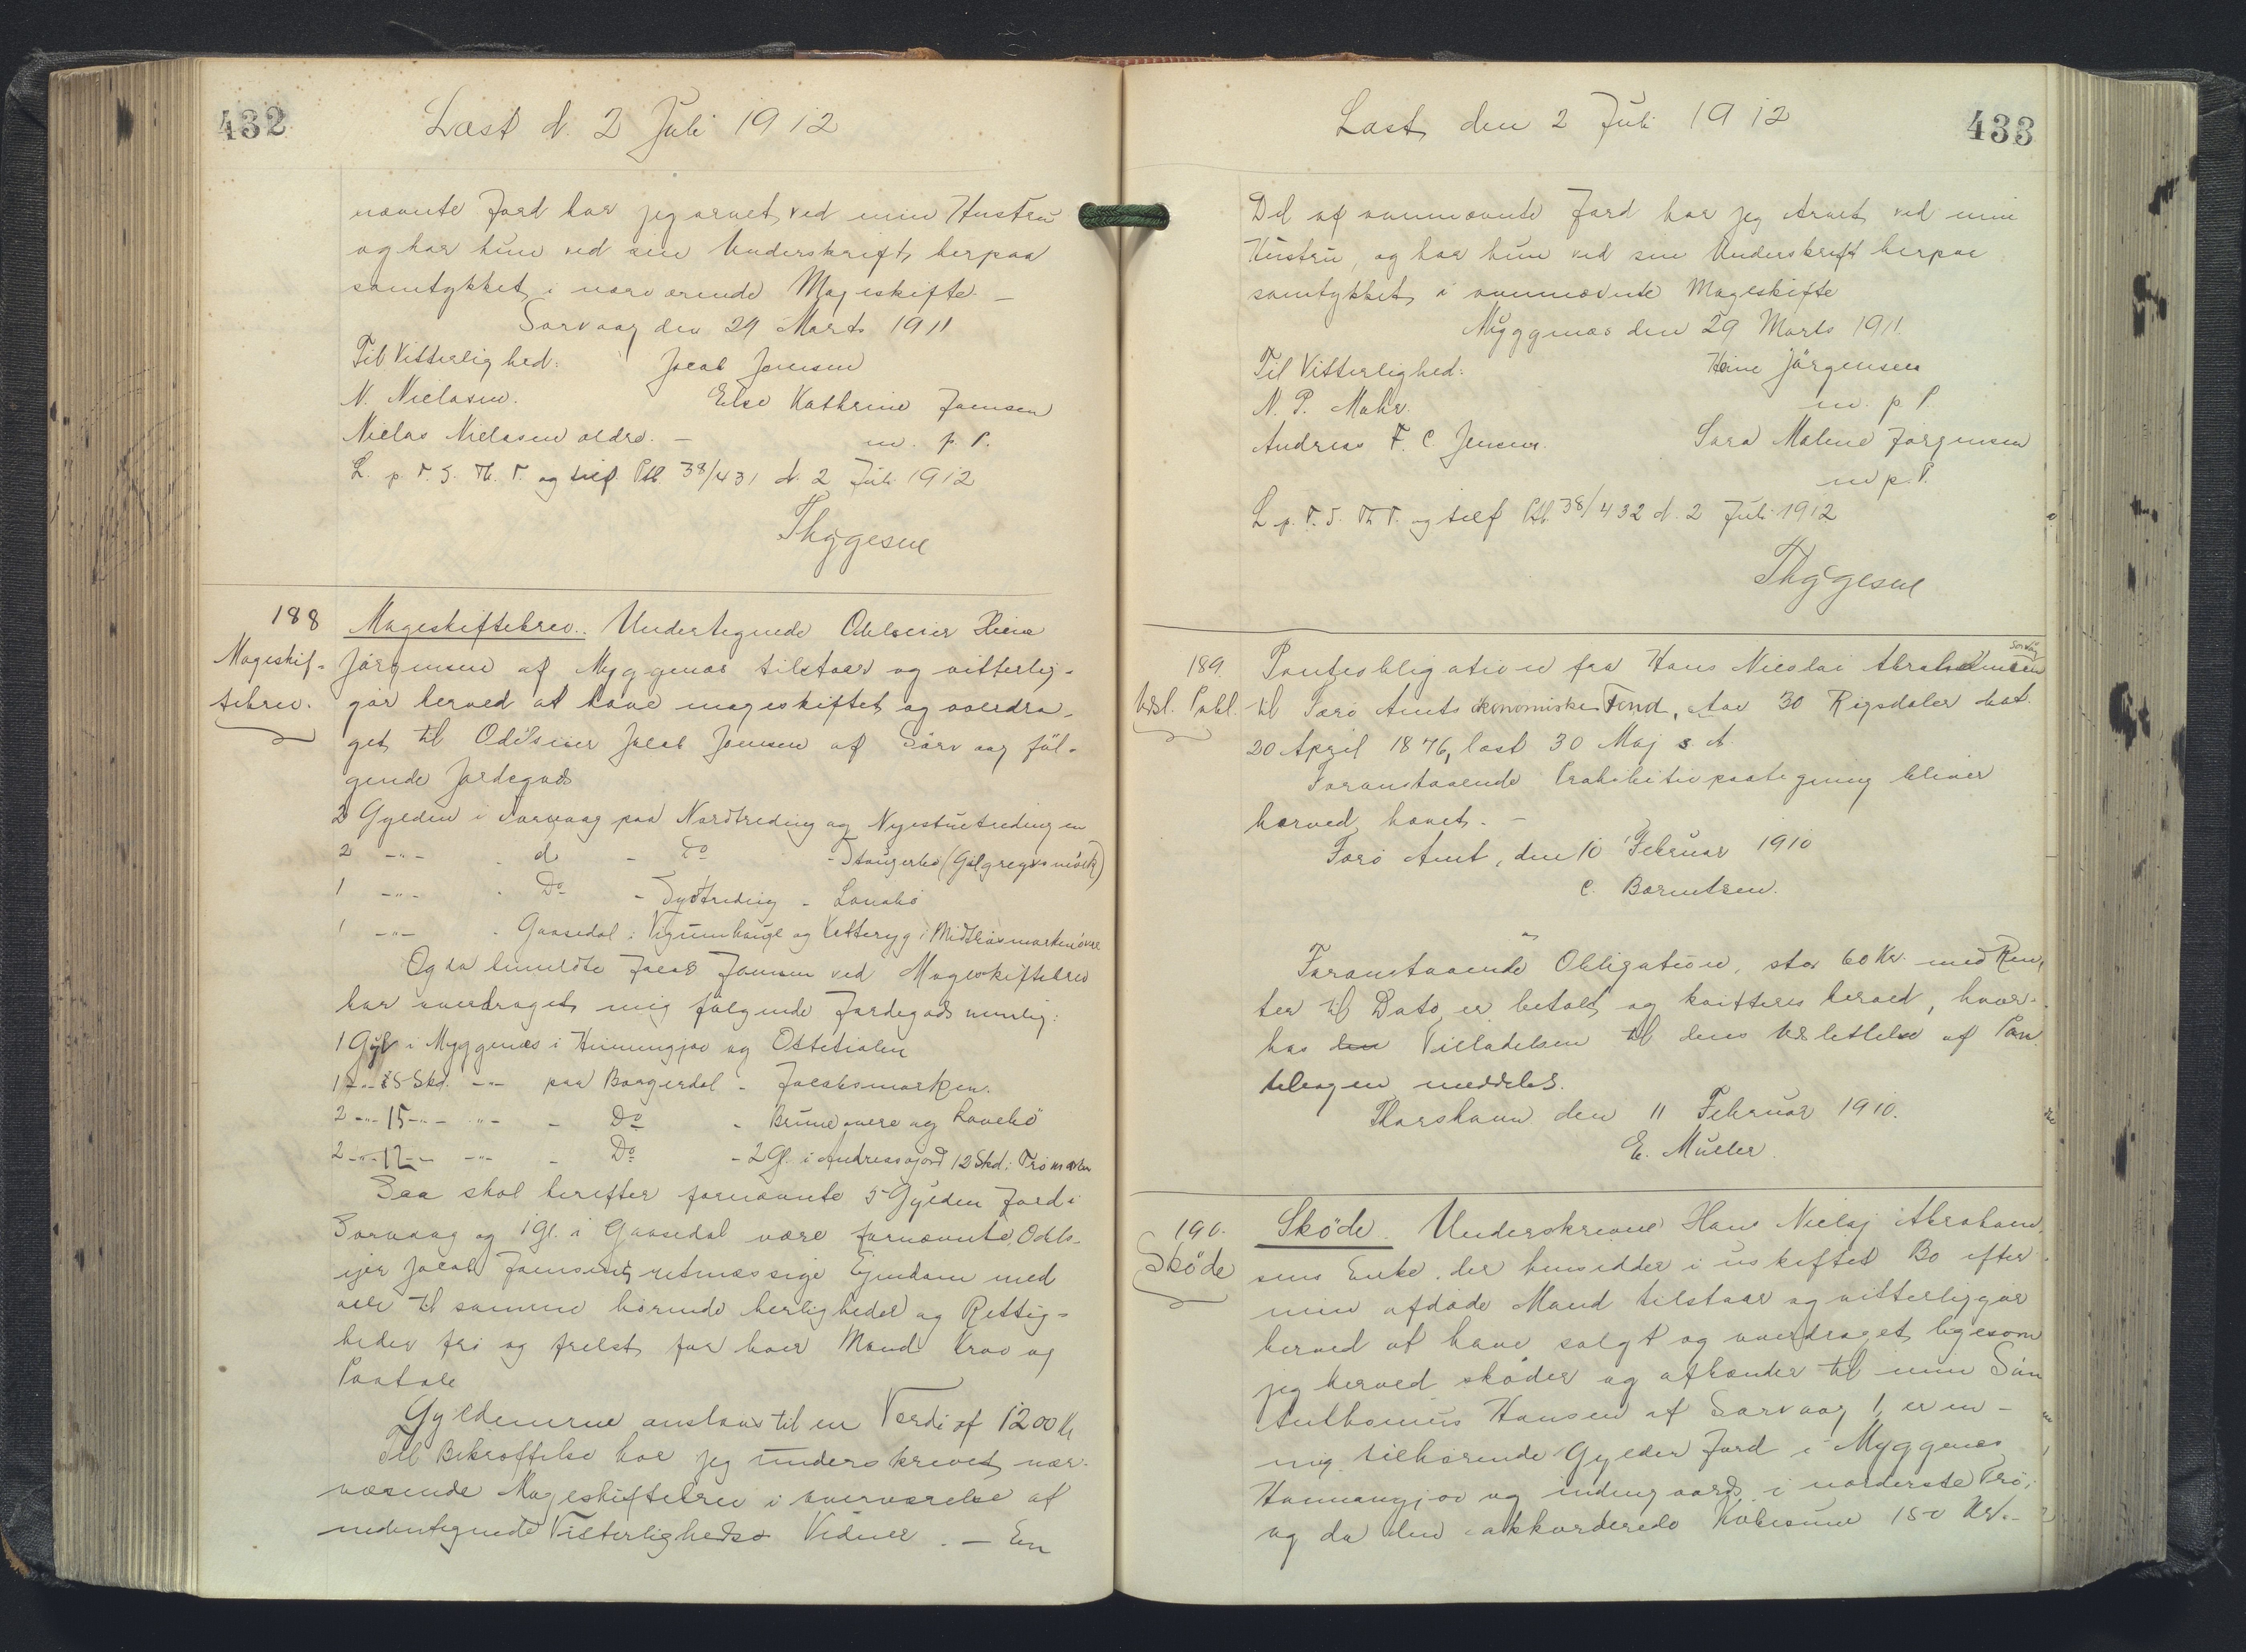 432
Læst d. 2 Juli 1912
nævnte Jord har jeg arvet ved min Hustru
og har hun ved sin Underskrift herpaa
samtykket i nærværende Mageskifte. —
Sørvaag den 29 Marts 1911
Til Vitterlighed: Jacob Joensen
N. Nielasen. Else Kathrine Joensen
Nielas Nielasen ældre. — m. p. P.
L. p. F. S. Th. P. og tilf. Ptb. 38/431 d. 2 Juli 1912
Thygesen
188 Mageskiftebrev. Undertegnede Odelseier Heine
Mageskif- Jørgensen af Myggenæs tilstaar og vitterlig-
tebrev. gør herved at have mageskiftet og overdra-
get til Odelseier Jacob Joensen af Sørvaag føl-
gende Jordegods
2 Gylden i Sørvaag paa Nordtreding og Nyestuetredingen
2 -"- - do - Do - Stougerbø (Galgregusmørk)
1 -"- - Do - Sydtreding - Lonabø
1 -"- - Gaasedal i Vigumhauge og Ketteryg i Midtbøsmarken øvre
Og da bemeldte Jacob Joensen ved Mageskiftebrev
har overdraget mig følgende Jordegods nemlig:
1 Gyl i Myggenæs i Heimmangjov og Ottetialen
1 -"- 15 Skd. -"- paa Borgerdal - Jacobsmarken.
2 -"- 15 -"- -"- - Do - Brune øvere og Lonebø
2 -"- 12 -"- -"- - Do - 2 Gl. i Andreasajord 12 Skd. i Trømarken
Saa skal herefter fornævnte 5 Gylden Jord i
Sørvaag og 1 Gl. i Gaasedal være fornævnte Odels-
ejer Jacob Joensens retmæssige Ejendom med
alle til samme hørende herligheder og Rettig-
heder fri og frelst for hver Mand Krav og
Paatale
Gyldenerne anslaas til en Værdi af 1200 Kr
Til Bekræftelse har jeg underskrevet nær-
værende Mageskiftebrev i overværelse af
nedentegnede Vitterligheds Vidner. — En
433
Læst den 2 Juli 1912
Del af ovennævnte Jord har jeg Arvet ved min
Hustru, og har hun ved sin Underskrift herpaa
samtykket i ovennævnte Mageskifte
Myggenæs den 29 Marts 1911.
Til Vitterlighed: Heine Jørgensen
N. P. Mohr. m. p. P.
Andreas F. C. Jensen. Sara Malene Jørgensen
m p. P.
L. p. F. S. Th. P. og tilf Ptb. 38/432 d. 2 Juli 1912
Thygesen
189. Panteobligation fra Hans Nicolai Abrahamsen Sørvaag
Udsl. Pobl. til Færø Amts økonomiske Fond, stor 30 Rigsdaler dat.
20 April 1876, læst 30 Maj s. A.
Foranstaaende Prohibitivpaategning bliver
herved hævet. —
Færø Amt, den 10 Februar 1910
C. Bærentsen.
Foranstaaende Obligation, stor 60 Kr. med Ren-
ter til Dato er betalt og kvitteres herved, hvor-
hos den Tilladelsen til dens Udslettelse af Pan-
tebogen meddeles.
Thorshavn den 11 Februar 1910.
E. Müller
190. Skøde. Underskrevne Hans Nielaj Abraham-
Skøde sens Enke, der hensidder i uskiftet Bo efter
min afdøde Mand tilstaar og vitterliggør
herved at have solgt og overdraget ligesom
jeg herved skøder og afhænder til min Søn
Anthonius Hansen af Sørvaag 1, en en —
mig tilhørende Gylden Jord i Myggenæs
Hannangjov og indengaards i nørderste Trø;
og da den akkorderede Købesum 150 Kr. —